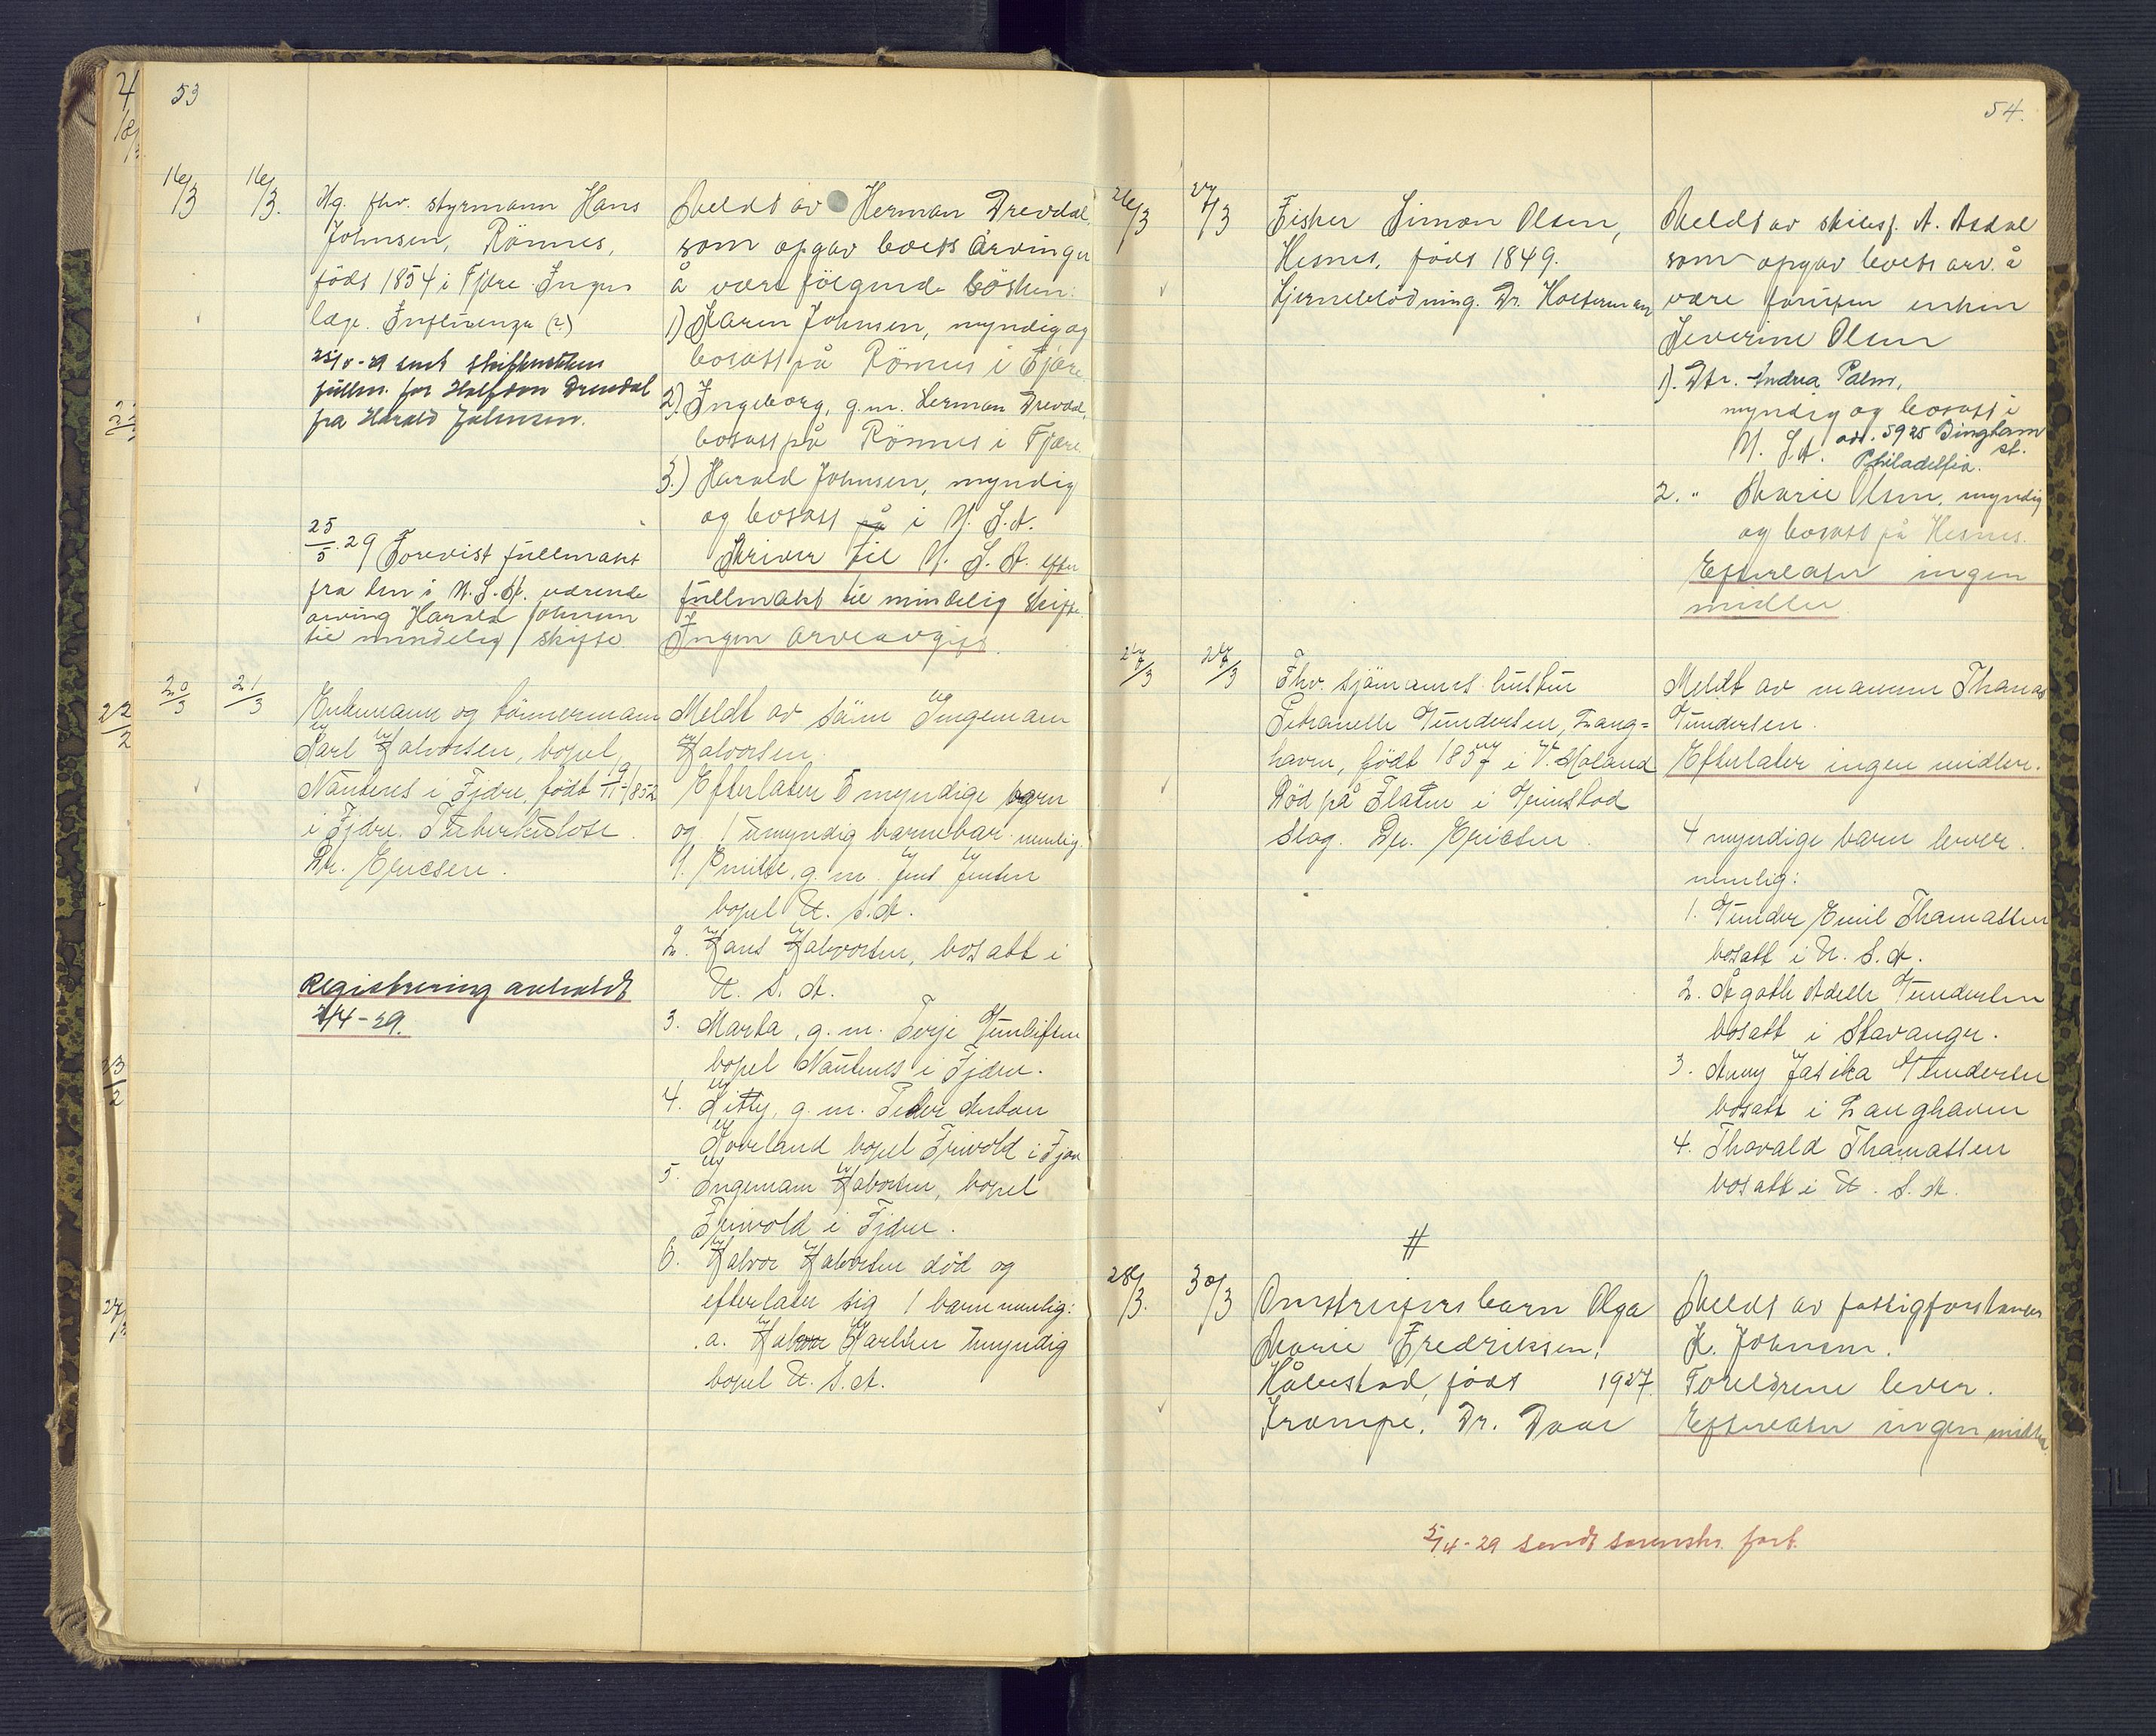 53
16/3 16/3.
Ug. fhv. styrmann Hans
Johnsen, Rönnes,
födt 1854 i Fjære. Ingen
læge. Influenza (?)
fullm. for Halfdan Drevdal
fra Harald Johnsen.
25/5 29 Forevist fullmakt
fra den i U.S.A. værende
arving Harald Johnsen
til mindelig skifte
Meldt av Herman Drevdal,
som opgav boets arvinger
å være fölgende sösken:
1) Karen Johnsen, myndig og
bosatt på Rönnes i Fjære
2) Ingeborg, g.m. Herman Drevdal,
bosatt på Rönnes i Fjære
3.) Harald Johnsen, myndig
og bosatt på i U.S.A.
Skriver til U.S.A. efter
fullmakt til mindelig skifte.
Ingen arveavgift.
20/3 21/3
Enkemann og tömmermann
Karl Halvorsen, bopel
Nautenes i Fjære, födt 19/11-1852
i Fjære. Tuberkulose.
Dr. Ericsen.
Registrering avholdt
2/4-29.
Meldt av sönn Ingemann
Halvorsen
Efterlater 5 myndige barn
og 1 umyndig barnebar. nemlig.
1. Emilie, g.m. Jens Jensen
bopel U.S.A.
2. Hans Halvorsen, bosatt i
U.S.A.
3. Marta, g.m. Terje Gunleifsen
bopel Nautenes i Fjære.
4. Kitty, g.m. Peder Anton
Hoveland bopel Frivold i Fjære
5. Ingemann Halvorsen, bopel
Frivold i Fjære.
6. Halvor Halvorsen död og
efterlater sig 1 barn nemlig:
a. Halvor Karlsen umyndig
bopel U.S.A.
54.
26/3 27/3
Fisker Simon Olsen,
Hesnes, födt 1849.
Hjerneblödning. Dr. Holterman
Meldt av skibsf. A. Asdal
som opgav boets arv. å
være foruten enken
Severine Olsen
1). Dtr. Andrea Palm,
myndig og bosatt i
U.S.A. adr. 5925 Bingham st.
Philadelfia.
2. " Marie Olsen, myndig
og bosatt på Hesnes.
Efterlater ingen
midler
27/3 27/3
Fhv. sjömanns hustru
Petranelle Gundersen, Lang=
havn, födt 1857 i V. Moland
Död på Flaten i Grimstad
Slag. Dr. Ericsen.
Meldt av mannen Thomas
Gundersen.
Efterlater ingen midler.
4 myndige barn lever.
nemlig:
1. Gunder Emil Thomassen
bosatt i U.S.A.
2. Agath Adelle Gundersen
bosatt i Stavanger.
3. Anny Jasika Gundersen
bosatt i Langhavn
4. Thorvald Thomassen
bosatt i U.S.A.
#
28/3. 30/3
Omstreiferbarn Olga
Marie Fredriksen,
Håbestad, födt 1927.
Krampe. Dr. Daae
Meldt av fattigforstander
K. Johnsen.
Foreldrene lever.
Efterlater ingen midler
5/4-29 sendt sorenskr. fort.